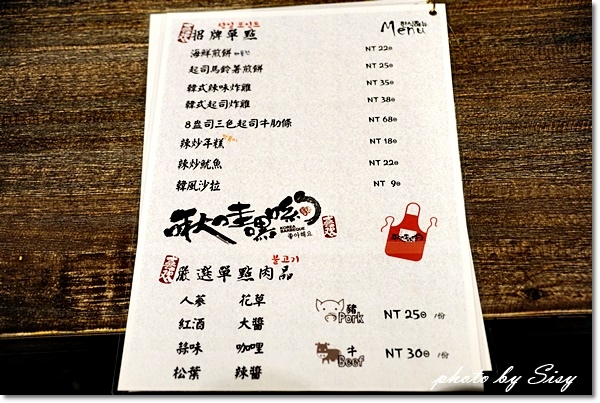 招牌單點
Menu
海鮮煎餅 NT 220
起司馬鈴薯煎餅 NT 250
韓式辣味炸雞 NT 350
韓式起司炸雞 NT 380
8盎司三色起司牛肋條 NT 680
辣炒年糕 NT 180
辣炒魷魚 NT 220
韓風沙拉 NT 90
KOREA
BARBECUE
좋아해요
불고기
嚴選單點肉品
人蔘 花草
紅酒 大醬
蒜味 咖哩
松葉 辣醬
豬
Pork NT 250 /份
牛
Beef NT 300 /份
photo by Sisy